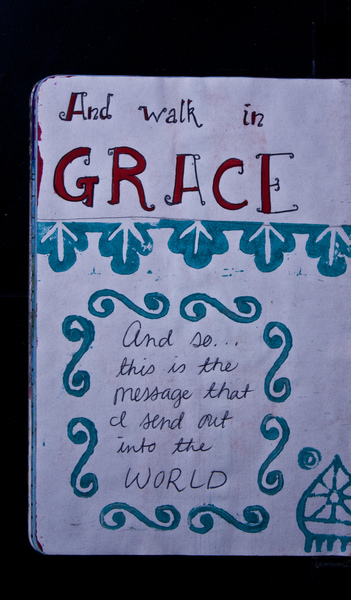 And walk in
GRACE
And so...
this is the
message that
I send out
into the
WORLD